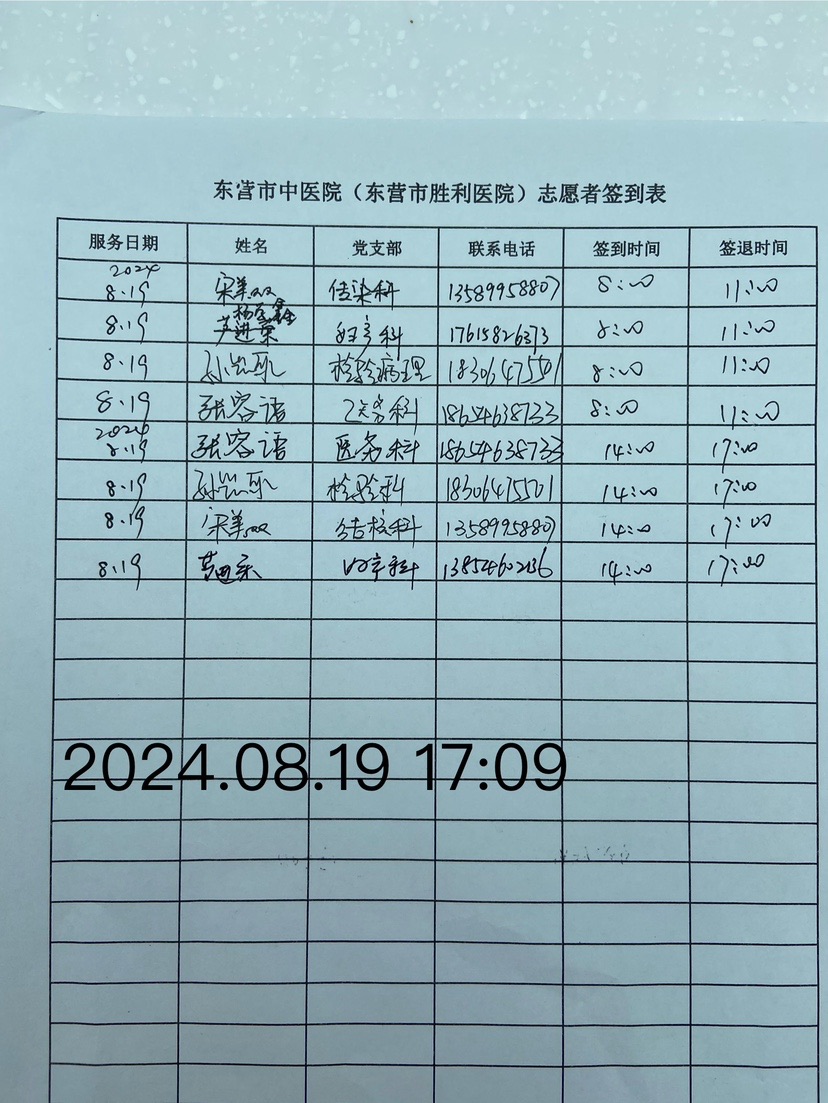 东营市中医院（东营市胜利医院）志愿者签到表
服务日期 姓名 党支部 联系电话 签到时间 签退时间
2024
8.19 宋美双 传染科 13589958807 8:00 11:00
8.19 妇产科 17615826373 8:00 11:00
8.19 检验病理 18306475501 8:00 11:00
8.19 张容语 科 18654638733 8:00 11:00
2024
8.19 张容语 医务科 18654638733 14:00 17:00
8.19 检验科 18306475501 14:00 17:00
8.19 宋美双 结核科 13589958807 14:00 17:00
8.19 妇产科 13854602136 14:00 17:00
2024.08.19 17:09